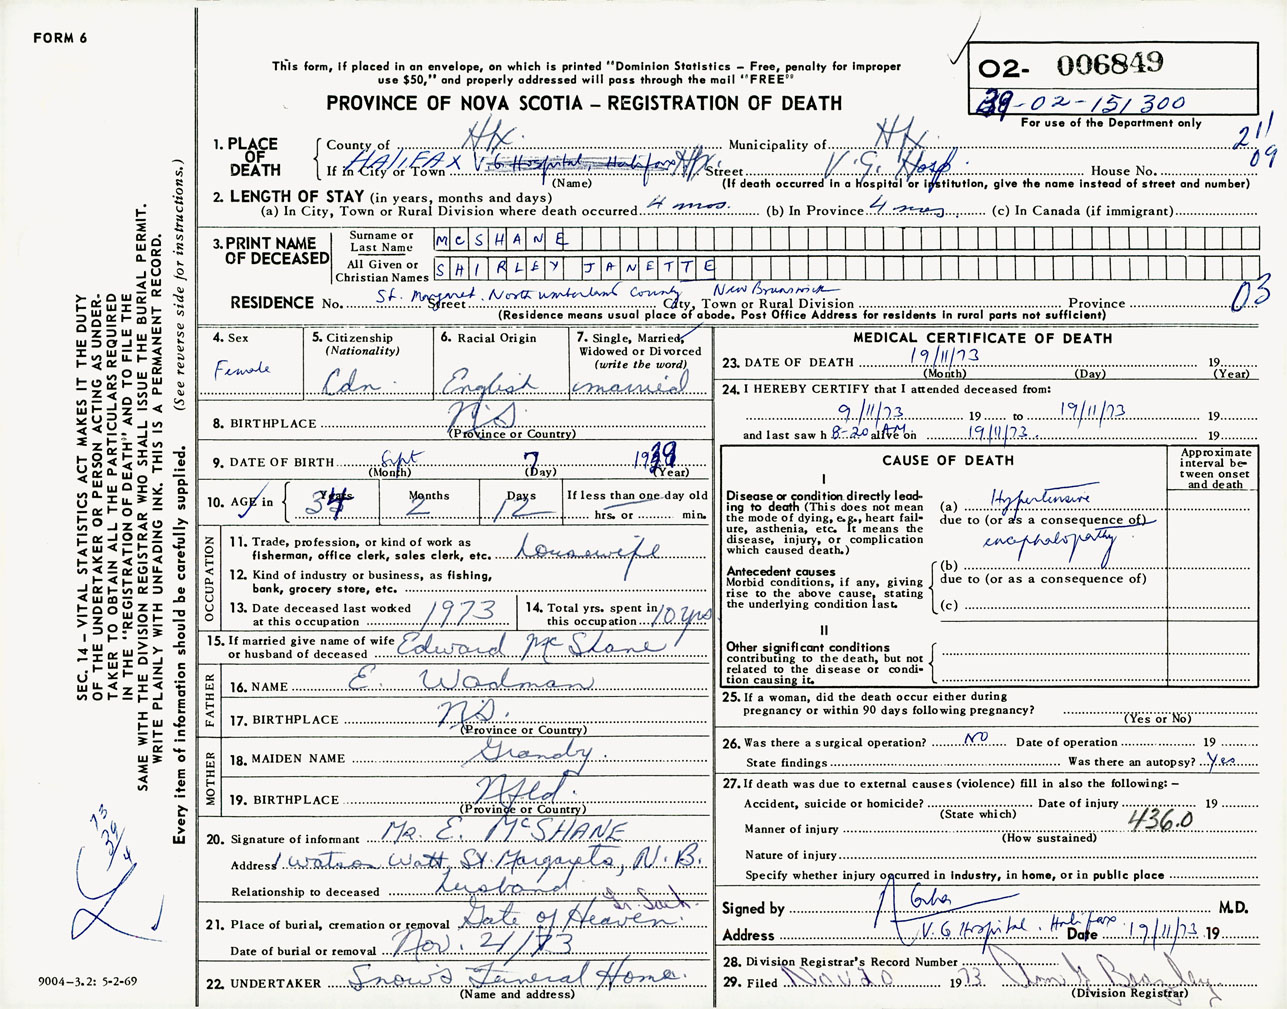 FORM 6
This form, if placed in an envelope, on which is printed "Dominion Statistics – Free, penalty for improper
use $50," and properly addressed will pass through the mail "FREE"
PROVINCE OF NOVA SCOTIA – REGISTRATION OF DEATH
O2- 006849
39-02-151300
For use of the Department only
211
09
1. PLACE OF DEATH
County of Hfx. Municipality of Hfx.
If in City or Town HALIFAX V.G. Hospital, Halifax Hfx Street V.G. Hosp House No.
(Name) (If death occurred in a hospital or institution, give the name instead of street and number)
2. LENGTH OF STAY (in years, months and days)
(a) In City, Town or Rural Division where death occurred 4 mos. (b) In Province 4 mos. (c) In Canada (if immigrant)
3. PRINT NAME OF DECEASED
Surname or Last Name MCSHANE
All Given or Christian Names SHIRLEY JANETTE
RESIDENCE No. St. Margaret. Northumberland County New Brunswick
Street City, Town or Rural Division Province 03
(Residence means usual place of abode. Post Office Address for residents in rural parts not sufficient)
4. Sex
Female
5. Citizenship
(Nationality)
Cdn.
6. Racial Origin
English
7. Single, Married, Widowed or Divorced
(write the word)
married
8. BIRTHPLACE N.S.
(Province or Country)
9. DATE OF BIRTH Sept 7 1939
(Month) (Day) (Year)
10. AGE in Years 34 Months 2 Days 12 If less than one day old
hrs. or min.
OCCUPATION
11. Trade, profession, or kind of work as
fisherman, office clerk, sales clerk, etc. housewife
12. Kind of industry or business, as fishing,
bank, grocery store, etc.
13. Date deceased last worked
at this occupation 1973
14. Total yrs. spent in
this occupation 10 yrs
15. If married give name of wife
or husband of deceased Edward McShane
FATHER
16. NAME E. Wadman
17. BIRTHPLACE N.S.
(Province or Country)
MOTHER
18. MAIDEN NAME Grandy.
19. BIRTHPLACE Nfld.
(Province or Country)
20. Signature of informant MR. E. McSHANE
Address 1 Watson Watt St. Margarets, N.B.
Relationship to deceased husband
21. Place of burial, cremation or removal Gate of Heaven. Lr. Sack.
Date of burial or removal Nov. 21/73
22. UNDERTAKER Snow's Funeral Home.
(Name and address)
MEDICAL CERTIFICATE OF DEATH
23. DATE OF DEATH 19/11/73 19
(Month) (Day) (Year)
24. I HEREBY CERTIFY that I attended deceased from:
9/11/73 19 to 19/11/73 19
and last saw h 8-20 AM alive on 19/11/73. 19
CAUSE OF DEATH
Approximate interval between onset and death
I
Disease or condition directly leading to death (This does not mean the mode of dying, e.g., heart failure, asthenia, etc. It means the disease, injury, or complication which caused death.)
(a) Hypertensive
due to (or as a consequence of)
encephalopathy
Antecedent causes
Morbid conditions, if any, giving rise to the above cause, stating the underlying condition last.
(b)
due to (or as a consequence of)
(c)
II
Other significant conditions
contributing to the death, but not related to the disease or condition causing it.
25. If a woman, did the death occur either during
pregnancy or within 90 days following pregnancy?
(Yes or No)
26. Was there a surgical operation? NO Date of operation 19
State findings Was there an autopsy? Yes
27. If death was due to external causes (violence) fill in also the following: –
Accident, suicide or homicide? Date of injury 19
(State which) 436.0
Manner of injury
(How sustained)
Nature of injury
Specify whether injury occurred in industry, in home, or in public place
Signed by M.D.
Address V.G Hospital. Halifax Date 19/11/73 19
28. Division Registrar's Record Number
29. Filed Nov 20 1973
(Division Registrar)
SEC. 14 – VITAL STATISTICS ACT MAKES IT THE DUTY
OF THE UNDERTAKER OR PERSON ACTING AS UNDER-
TAKER TO OBTAIN ALL THE PARTICULARS REQUIRED
IN THE "REGISTRATION OF DEATH" AND TO FILE THE
SAME WITH THE DIVISION REGISTRAR WHO SHALL ISSUE THE BURIAL PERMIT.
WRITE PLAINLY WITH UNFADING INK. THIS IS A PERMANENT RECORD.
Every item of information should be carefully supplied. (See reverse side for instructions.)
73
39
4
9004-3.2: 5-2-69